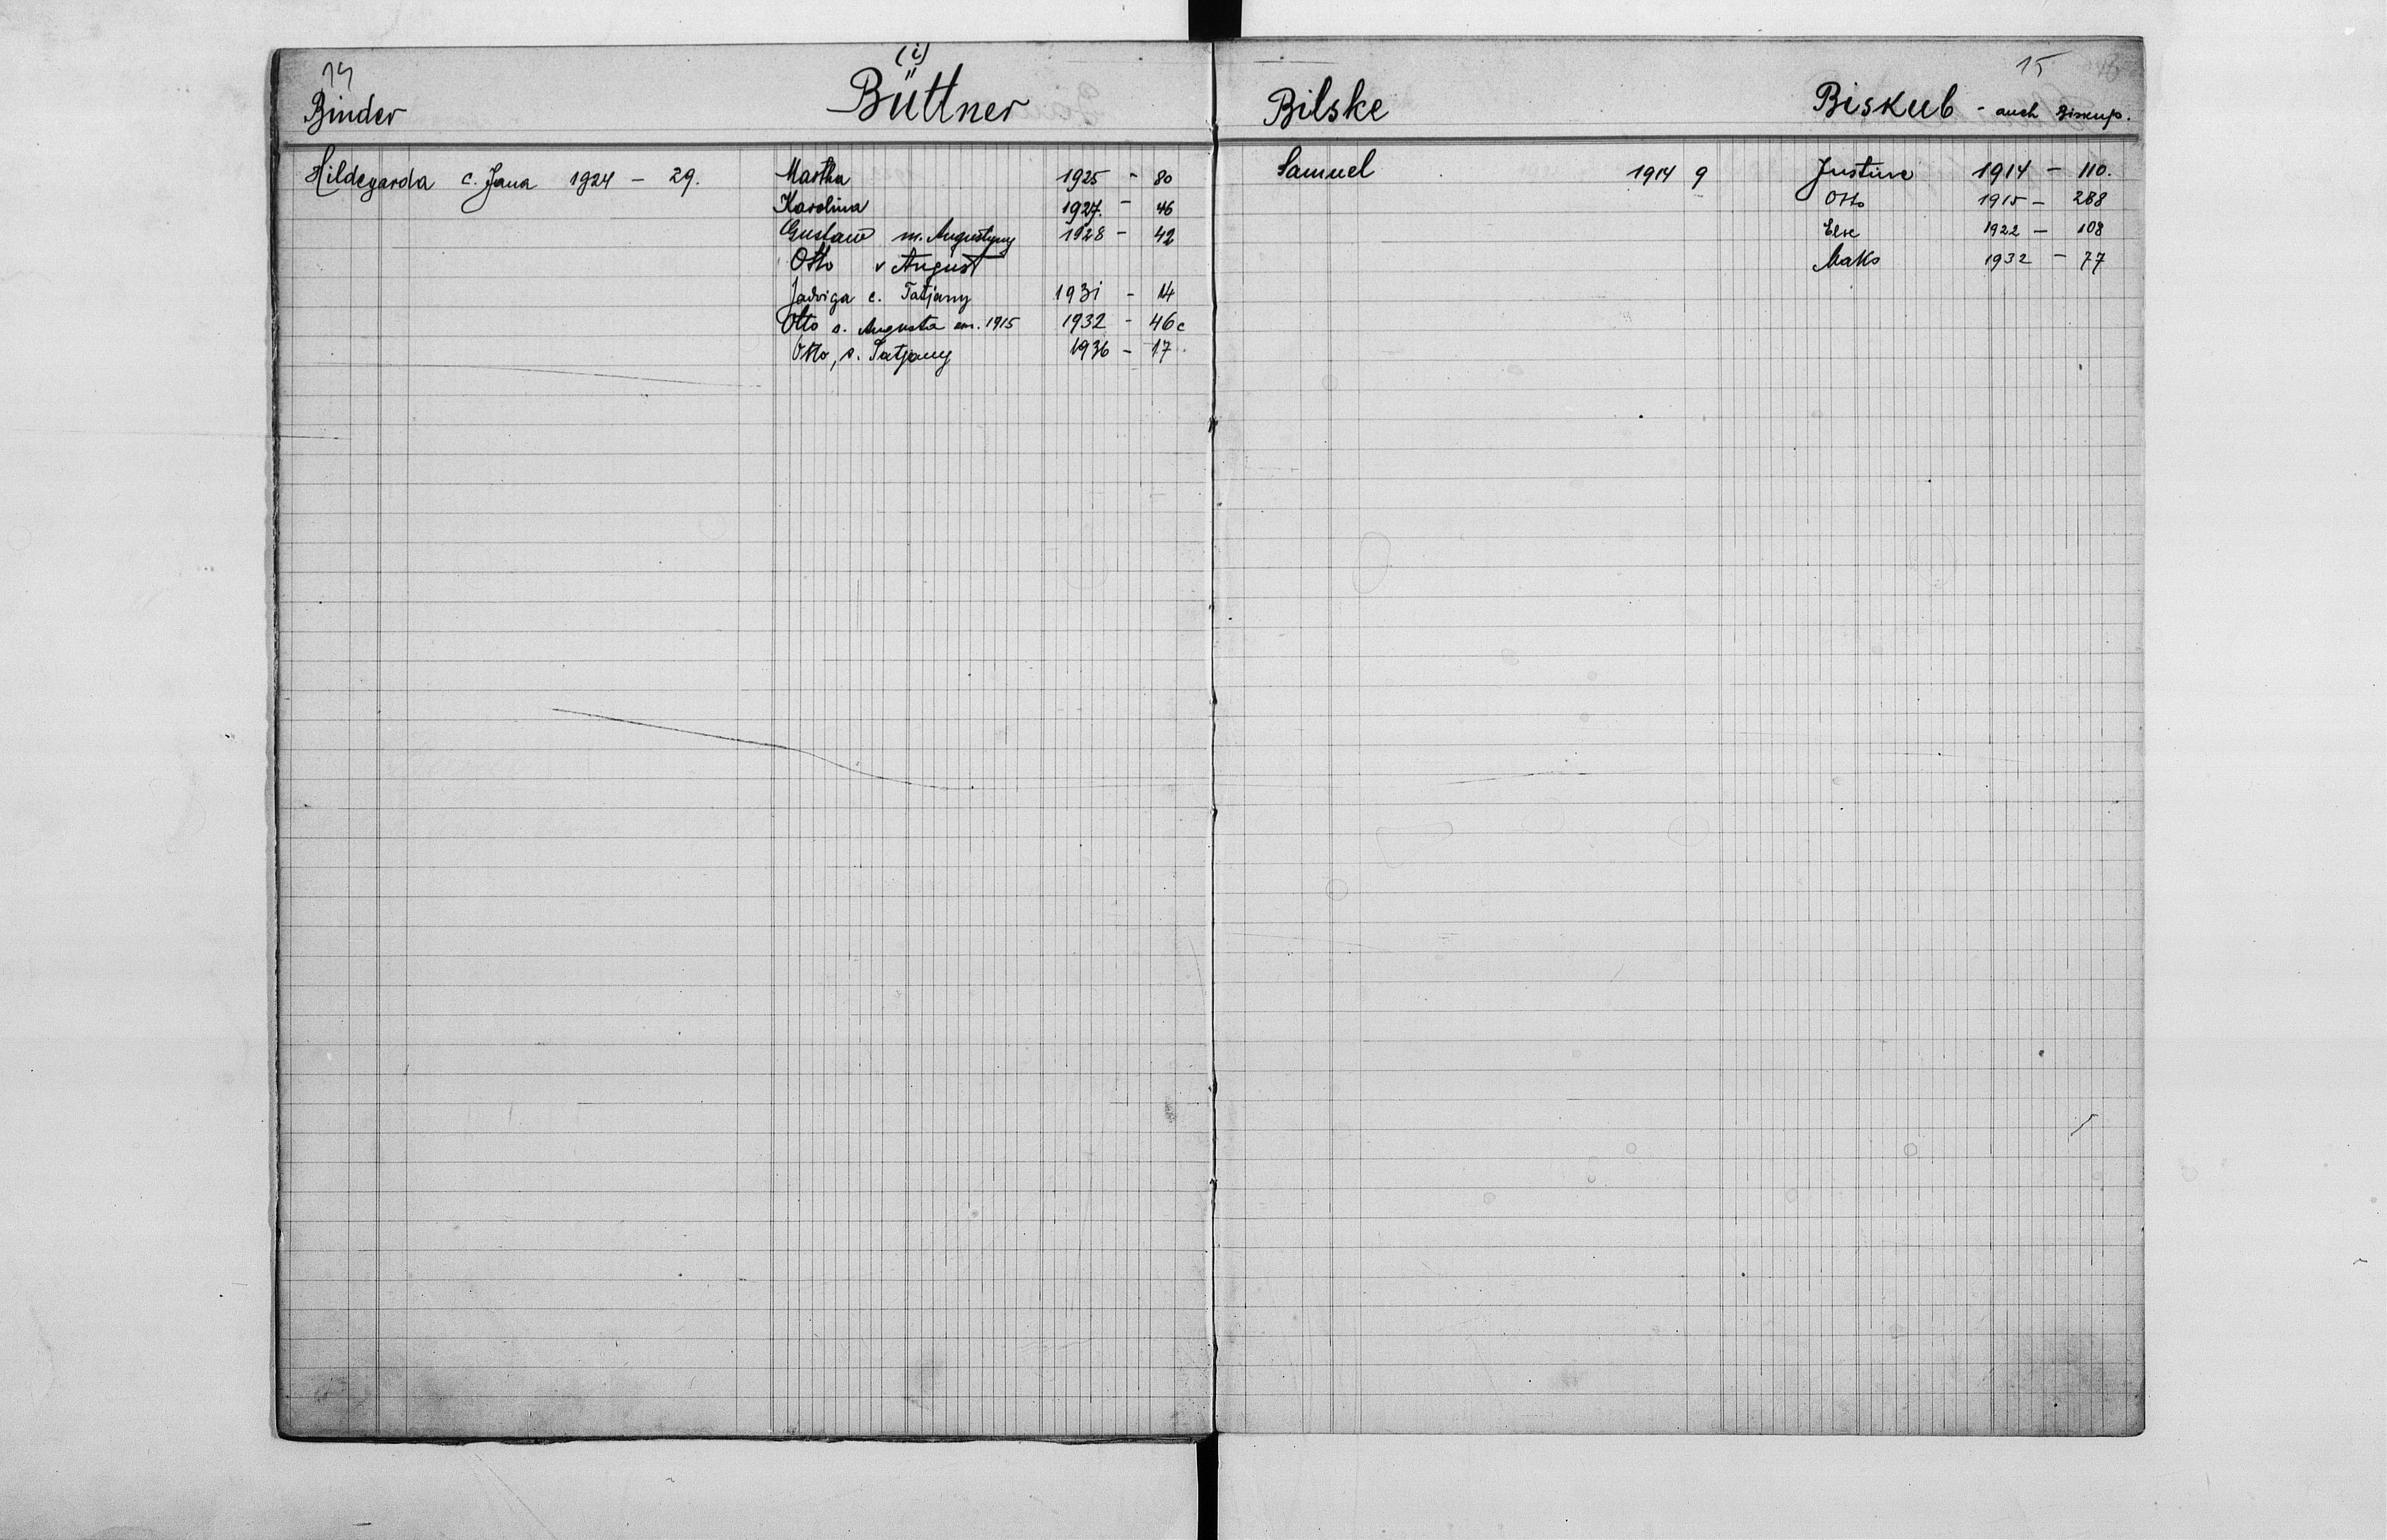 14
Binder
Hildegarda c. Jana 1924 - 29.
(i)
Büttner
Martha 1925 - 80
Karolina 1927. - 46
Gustaw m. Augustyny 1928 - 42
Otto v August
Jadviga c. Tatjany 1931 - 14
Otto s. Augusta 1915 1932 - 46c
Otto, s. Tatjany 1936 - 17
Bilske
Samuel 1914 9
15
Biskub - auch Biskup.
Justine 1914 - 110.
Otto 1915 - 288
Else 1922 - 108
1932 - 77